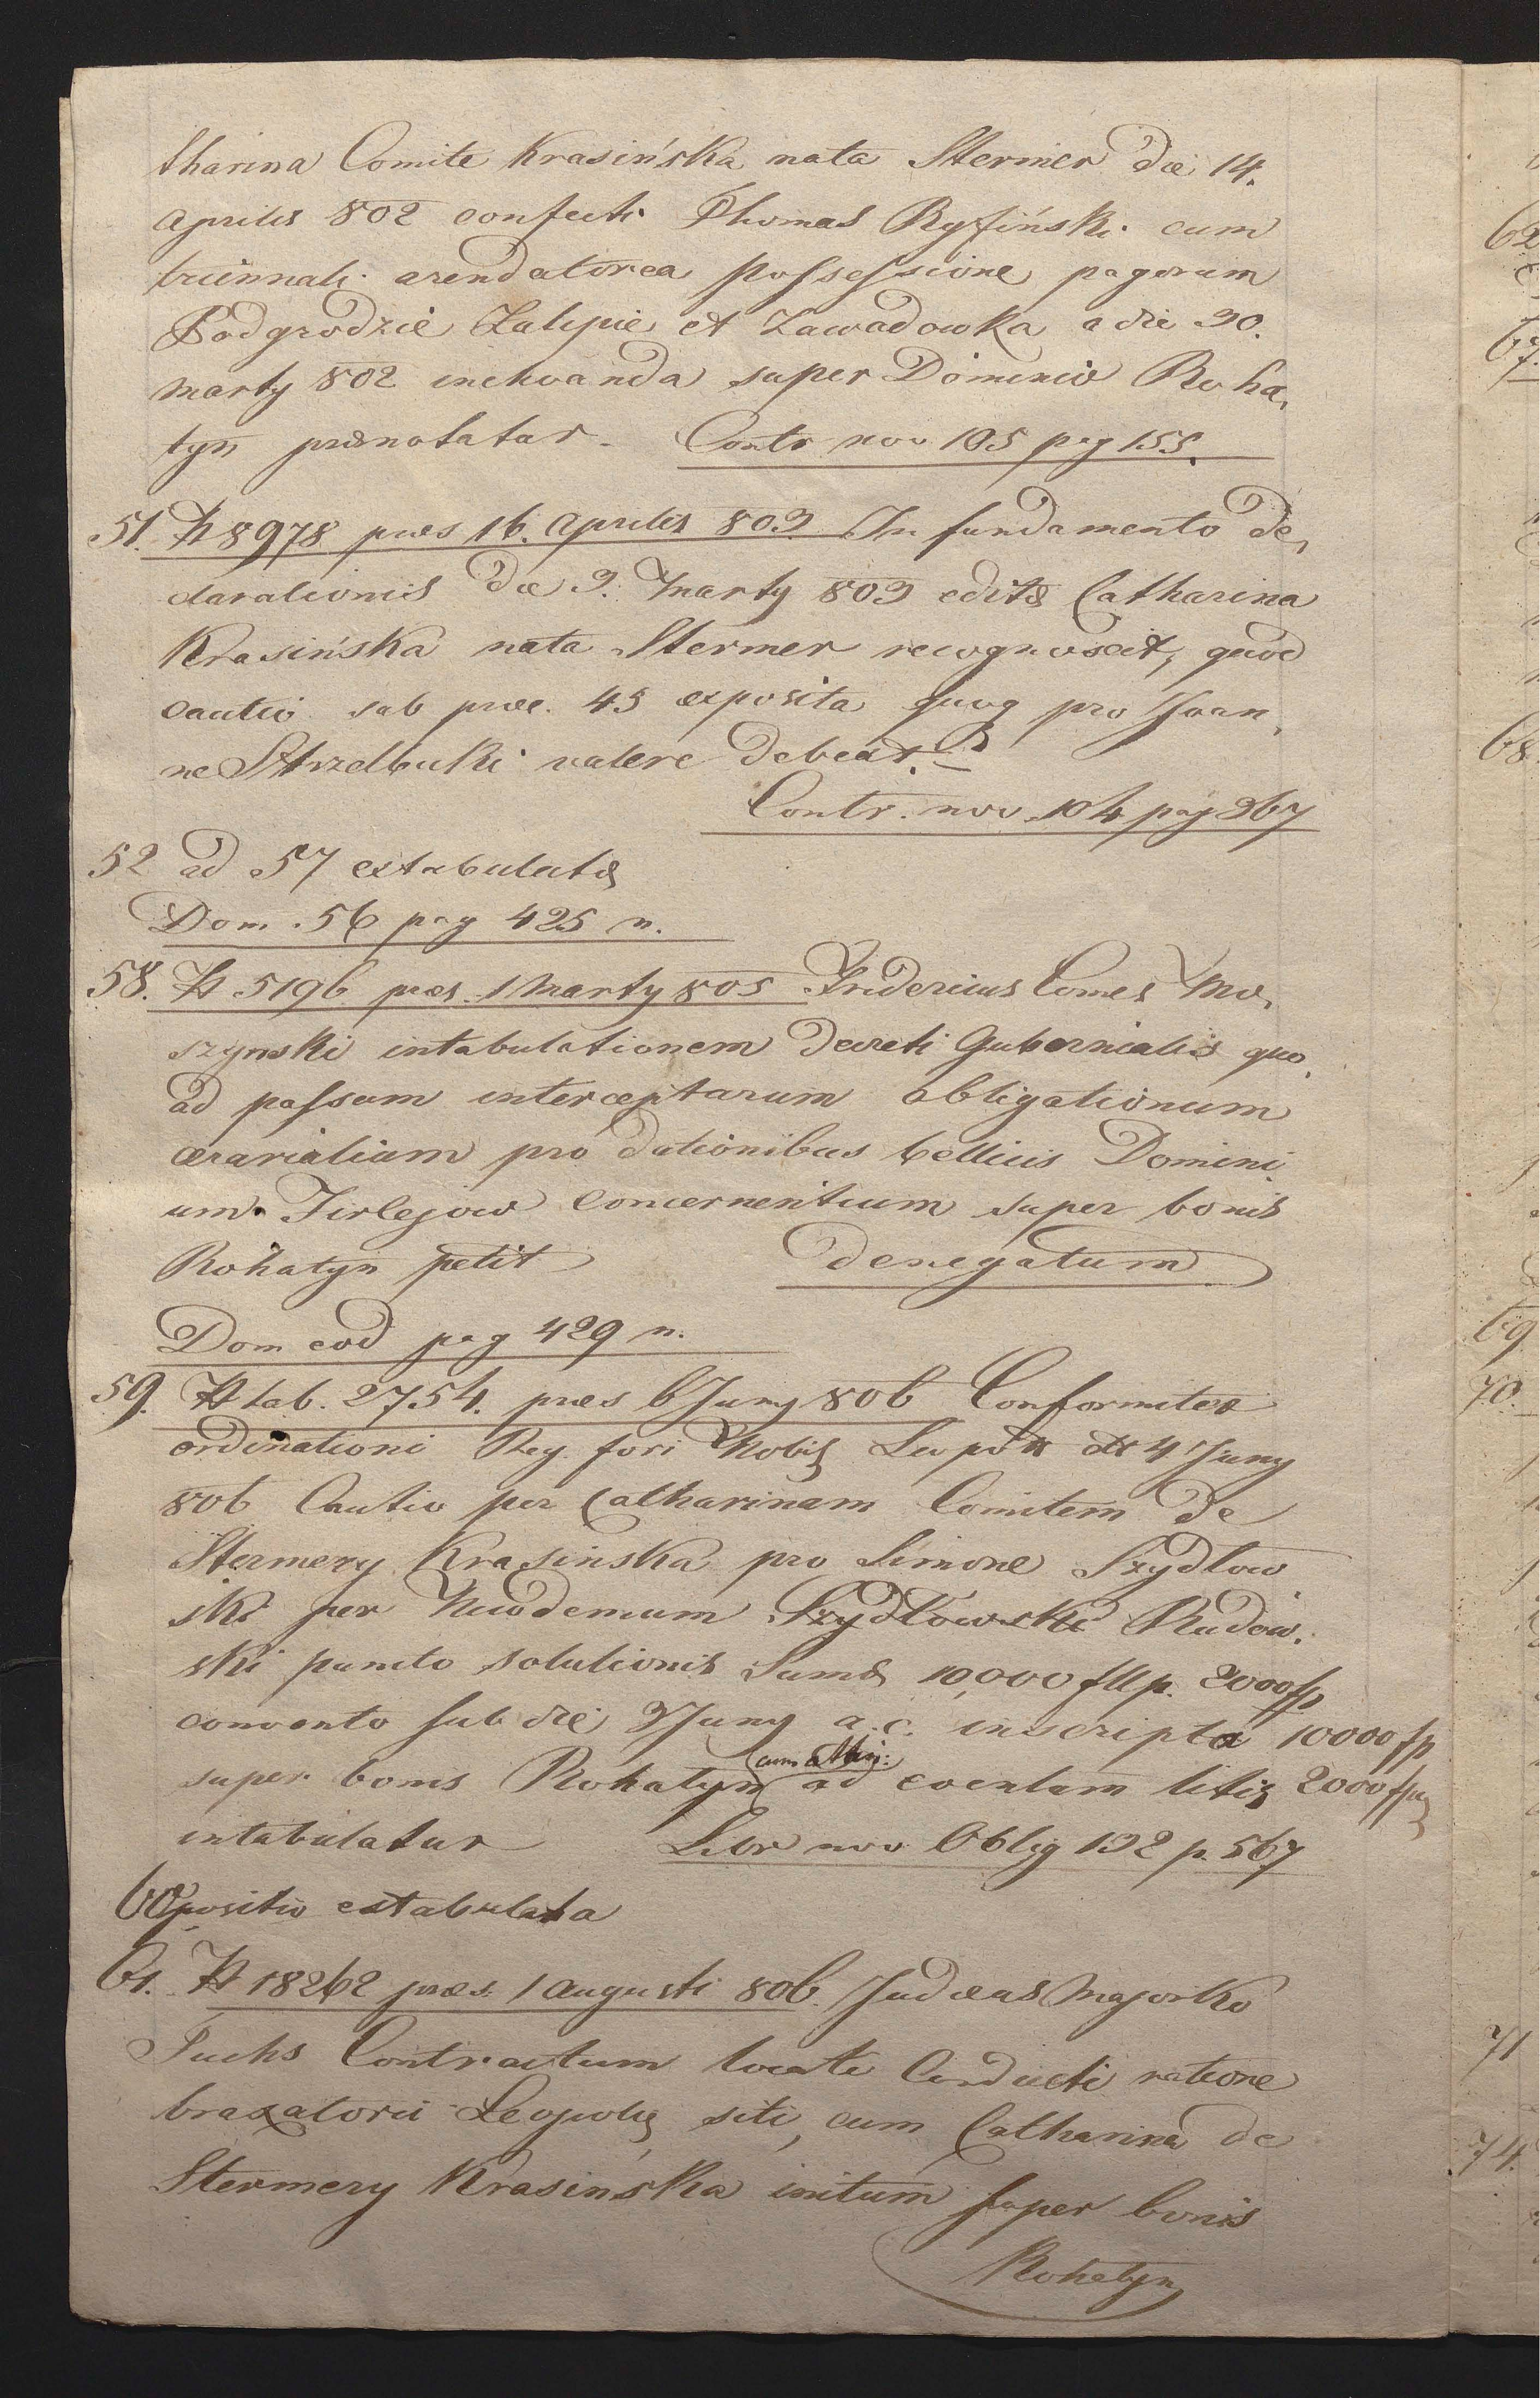 tharina Comite Krasińska nata Stermer die 14.
Aprilis 802 confecti Thomas Ryfiński cum
triennali arendatorea possessione pagorum
Podgrodzie Zalipie et Zawadowka a die 30.
Marty 802 inchoanda super Dominio Roha,
tyn prænotatur. Contr nov 105 pag 155.
51. N 8978 præs 16. Aprilis 803 In fundamento de,
clarationis die 3. Marty 803 editæ Catharina
Krasińska nata Stermer recognoscit, quod
cautio sub præc. 45 exposita quoq pro Joan,
ne Strzelbicki valere debeat.
Contr. nov. 104 pag 367
52 ad 57 extabulatæ
Dom. 56 pag 425 n.
58. N 5196 præs. 1 Marty 805 Fridericus Comes Mo,
szynski intabulationem decreti Gubernialis quo,
ad passum interceptarum obligationum
ærarialium pro dationibus bellicis Domini,
um Firlejow concernentium super bonis
Rohatyn petit denegatum
Dom eod pag 429 n.
59. N tab. 2754. præs 6 Juny 806 Conformiter
ordinationi Reg. fori Nobil Leopol dtt 4 Juny
806 Cautio per Catharinam Comitem de
Stermery Krasinska pro Simone Szydlow
ski per Nicodemum Szydlowski Rudow.
ski puncto solutionis Sumæ 10,000 fllp. 2000 fp
convento sub die 3 Juny a.c. inscripta 10000 fp
super bonis Rohatyn (cum attin: ad eventum litis 2000 fp
intabulatur Libr nov Oblig 132 p. 567
60 positio extabulata
61. N 18262 præs. 1 Augusti 806. Judæus Majorko
Fuchs Contractum locati Conducti ratione
braxatorii Leopolis siti, cum Catharina de
Stermery Krasińska initum super bonis
Rohatyn